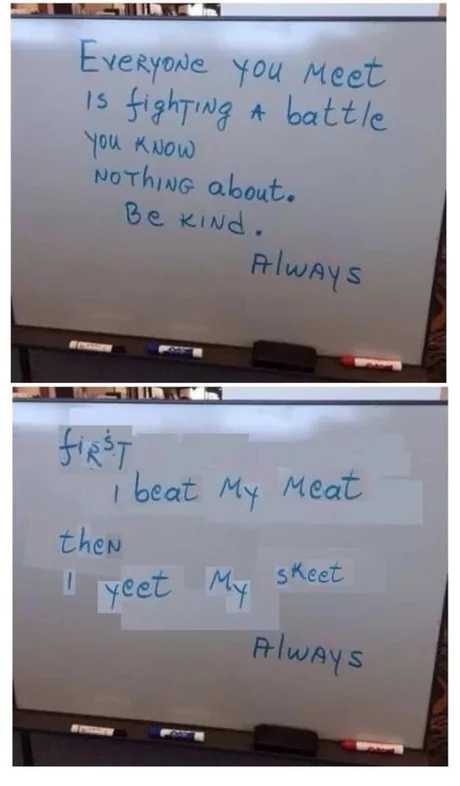 EveRyoNe you Meet
is fighTiNg A battle
you KNOW
NOThiNG about.
Be KiNd.
AlWAYS
fiRsT
I beat My Meat
theN
I yeet My sKeet
AlWAYS